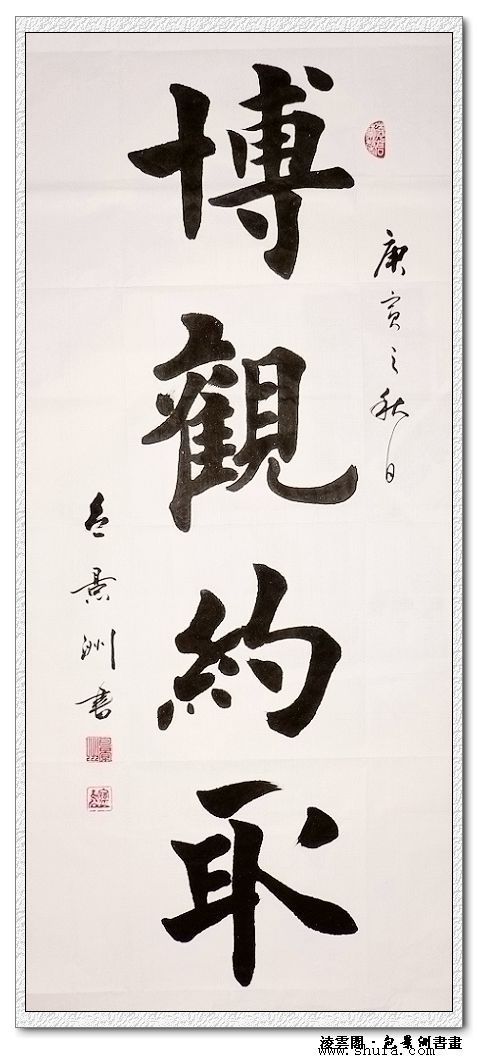 庚寅之秋日
博觀約取
包景洲書
淩雲閣·包景洲書畫
www.shufa.com